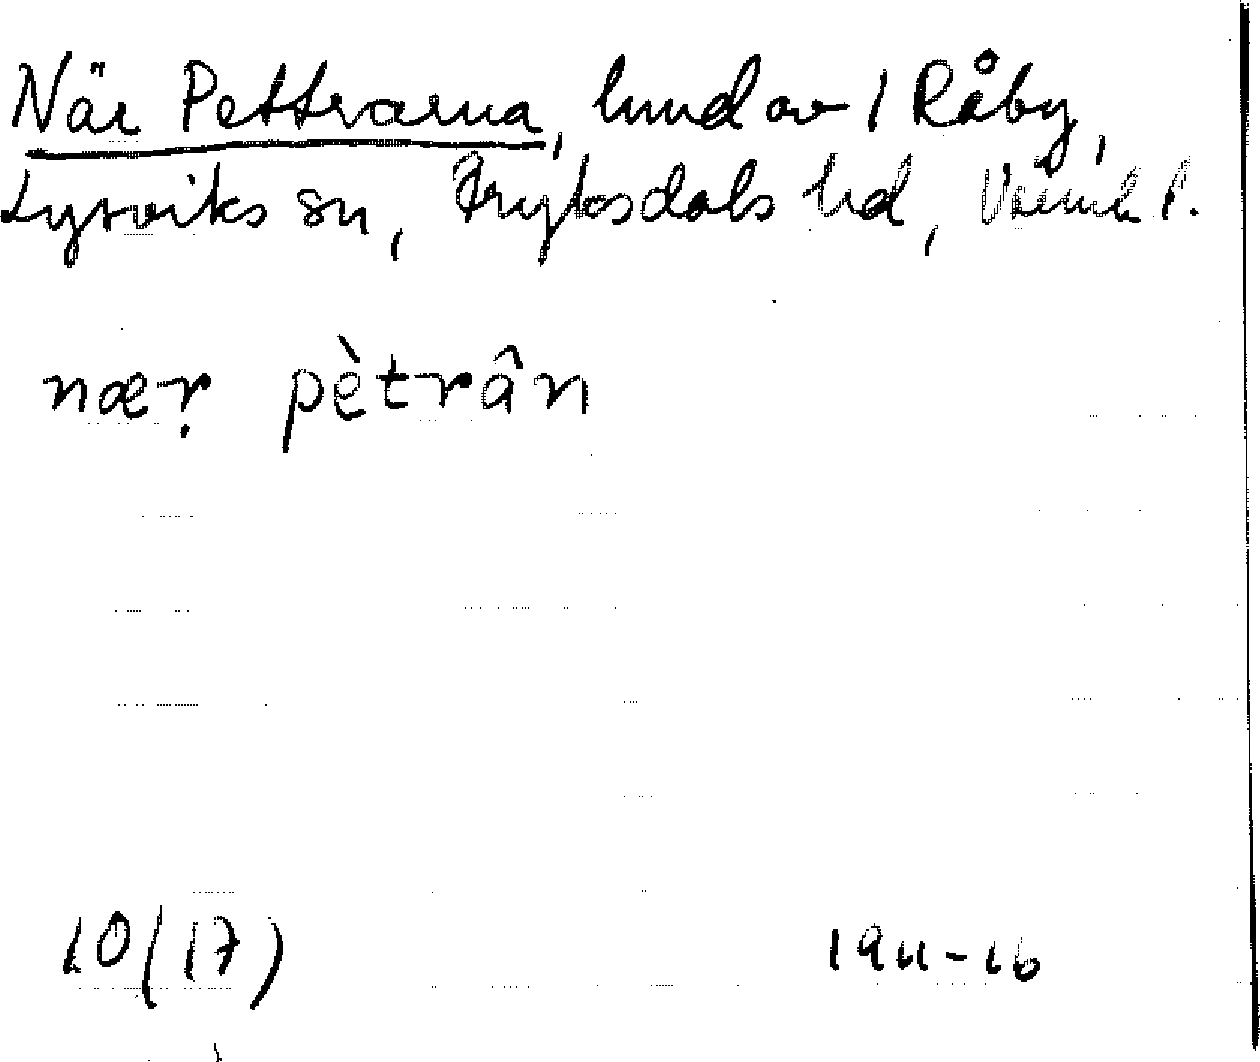 När Pettrarna, hmd av 1 Råby,
Lysviks sn, Fryksdals hd, Värml l.
nær pètrân
10(17) 1911-16